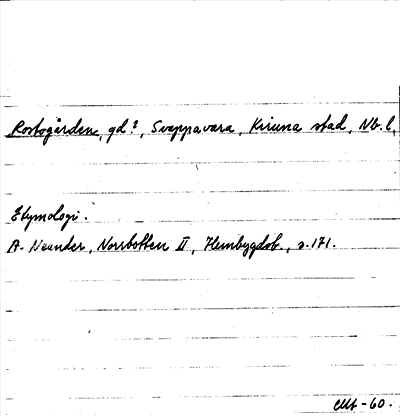 Rostogården, gd?, Svappavara, Kiruna stad, Nb. l.
Etymologi.
A. Neander, Norrbotten II, Hembygdsb., s. 171.
-60.